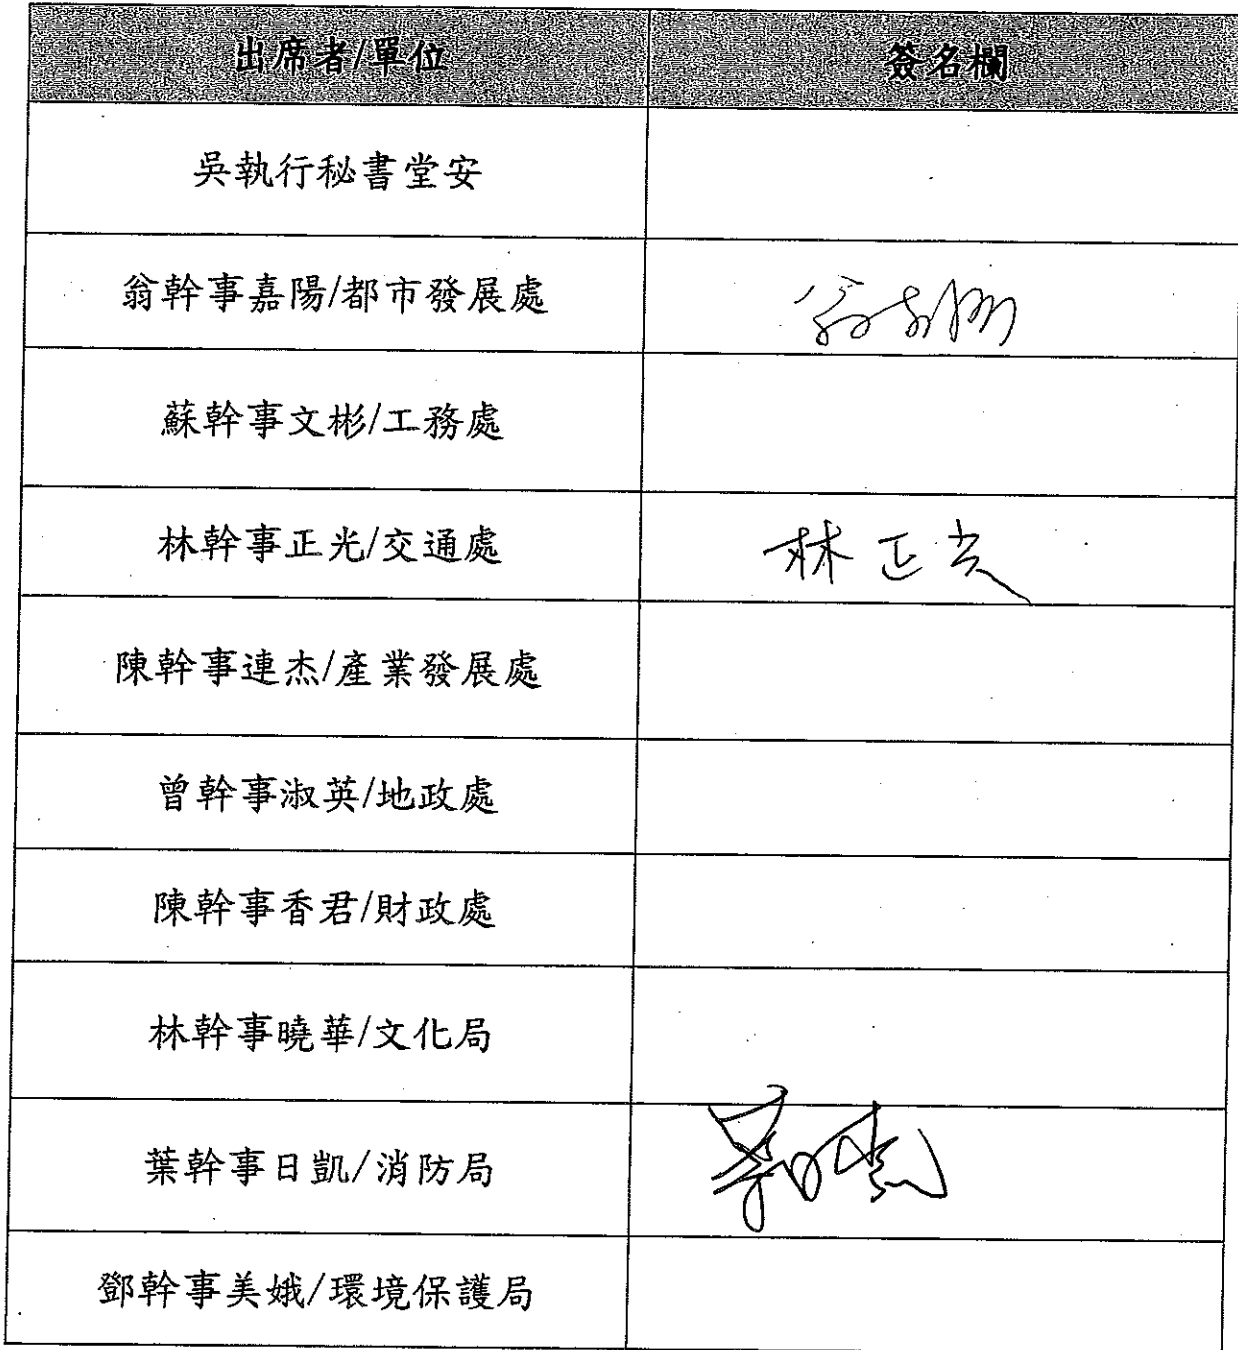 出席者/單位 簽名欄
吳執行秘書堂安
翁幹事嘉陽/都市發展處 翁嘉陽
蘇幹事文彬/工務處
林幹事正光/交通處 林正光
陳幹事連杰/產業發展處
曾幹事淑英/地政處
陳幹事香君/財政處
林幹事曉華/文化局
葉幹事日凱/消防局
鄧幹事美娥/環境保護局